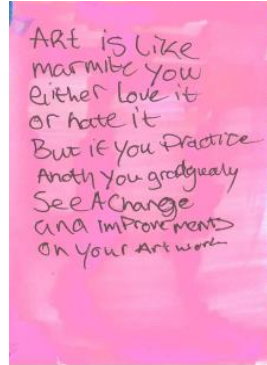 ARt is Like
marmite you
either Love it
or hate it
But if you Practice
Anoth you gradgualy
See A Change
and improvements
on your Art work